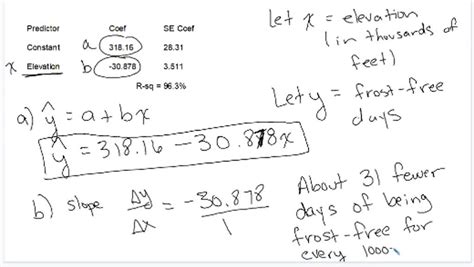 Predictor Coef SE Coef
Constant a 318.16 28.31
x Elevation b -30.878 3.511
R-sq = 96.3%
Let x = elevation
(in thousands of
feet)
Let y = frost-free
days
a) ŷ = a + bx
ŷ = 318.16 - 30.878x
b) slope Δy/Δx = -30.878/1
About 31 fewer
days of being
frost-free for
every 1000